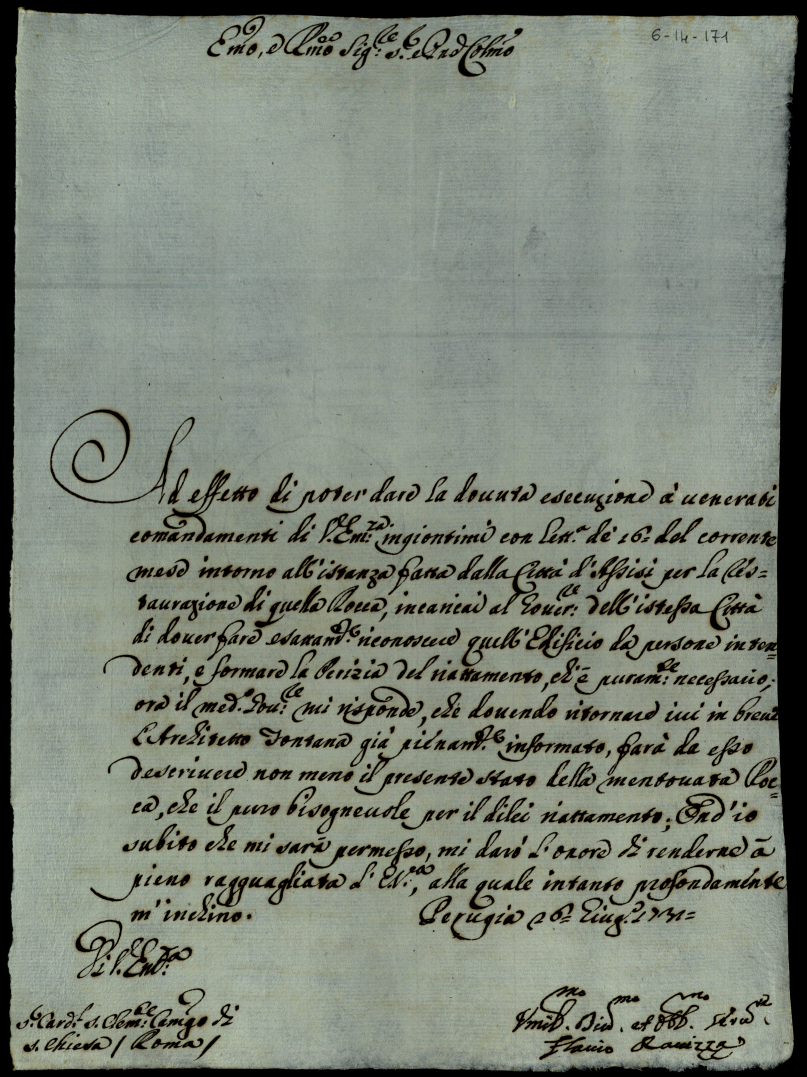 6-14-171
Emo, e Rmo Sig.re S.r e Pnd Colmo
Ad effetto di poter dare la dovuta esecuzione à venerati
comandamenti di V. Em.za ingiontimi con lett.a de 16 del corrente
mese intorno all'istanza fatta dalla Città d'Assisi per la res=
taurazione di quella Rocca, incaricai al Gover.re dell'istessa Città
di dover fare esattam.te riconoscere quell'Edificio da persone inten=
denti, e formare la Perizia del riattamento, ch'è puram.te necessario;
ora il med.o Gov.re mi risponde, che dovendo ritornare ivi in breve
l'Architetto Fontana già pienam.te informato, farà da esso
descrivere non meno il presente stato della mentovata Roc=
ca, che il puro bisognevole per il dilei riattamento; Ond'io
subito che mi sarà permesso, mi darò l'onore di renderne à
pieno ragguagliata l'Em.za, alla quale intanto profondamente
m'inchino. Perugia 26 Giug.o 1731=
Di V. Em.za
S.r Card.l S. Clem.te Camgo di
S. Chiesa / Roma /
Umil.mo Div.mo et Obb.mo Ser.re
Flavio Ravizza